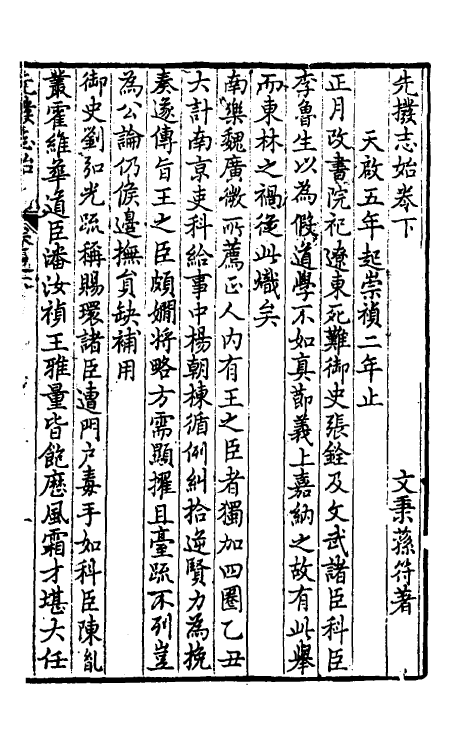 先撥志始卷下　文秉蓀符著
天啟五年起崇禎二年止
正月改書院祀遼東死難御史張銓及文武諸臣科臣
李魯生以為假道學不如真節義上嘉納之故有此舉
而東林之禍從此熾矣
南樂魏廣微所薦正人內有王之臣者獨加四圈乙丑
大計南京吏科給事中楊朝棟循例糾拾逆賢力為挽
奏遂傳旨王之臣頗嫺將略方需顯擢且臺疏不列豈
為公論仍俟邊撫員缺補用
御史劉弘光疏稱賜環諸臣遭門户毒手如科臣陳胤
叢霍維華道臣潘汝禎王雅量皆飽歷風霜才堪大任
先撥志始